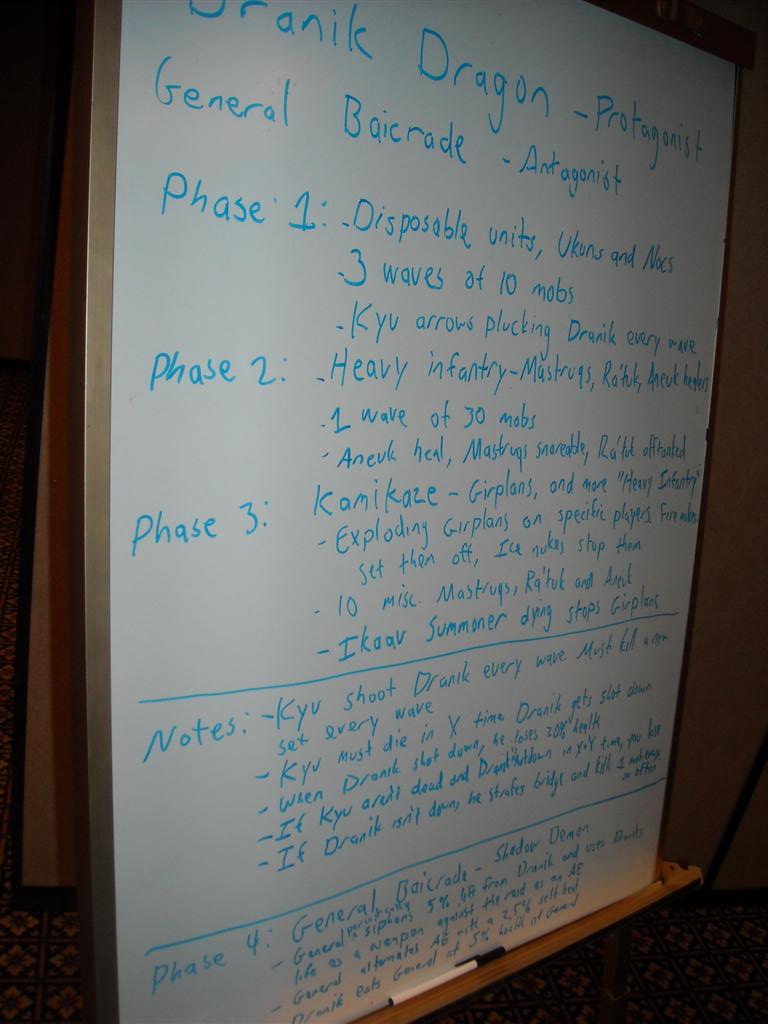 Dranik Dragon - Protagonist
General Baicrade - Antagonist
Phase 1: - Disposable units, Ukuns and Nocs
- 3 waves of 10 mobs
- Kyv arrows plucking Dranik every wave
Phase 2: - Heavy infantry - Mastruqs, Ra'tuk, Aneuk healers
- 1 wave of 30 mobs
- Aneuk heal, Mastruqs snareable, Ra'tuk offtanked
Phase 3: Kamikaze - Girplans, and more "Heavy Infantry"
- Exploding Girplans on specific players. Fire nukes
set them off, Ice nukes stop them
- 10 misc. Mastruqs, Ra'tuk and Aneuk
- Ikaav Summoner dying stops Girplans
Notes: - Kyv shoot Dranik every wave. Must kill a new
set every wave
- Kyv must die in X time Dranik gets shot down
- When Dranik shot down, he loses 20% health
- If Kyv aren't dead and Dranik shotdown in X+Y time, you lose
- If Dranik isn't down, he strafes bridge and kills 1 mob every
so often
Phase 4: General Baicrade - Shadow Demon
- General periodically siphons 5% life from Dranik and uses Draniks
life as a weapon against the raid as an AE
- General alternates AE with a 2.5% self heal
- Dranik eats General at 5% health of General